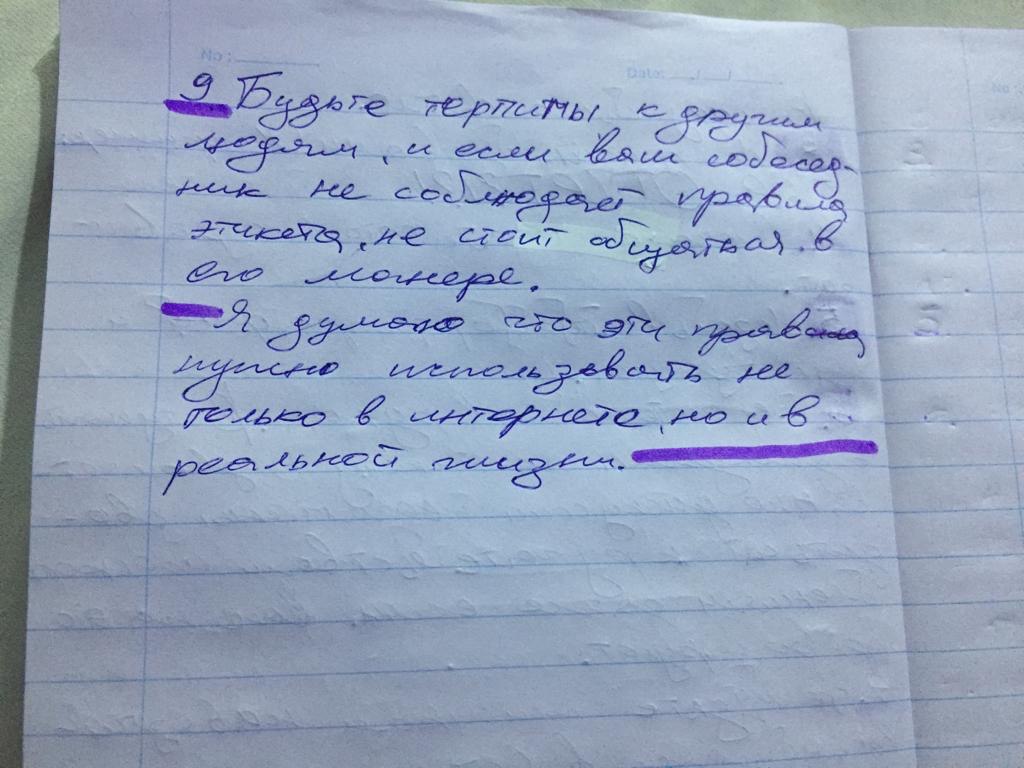 9 Будьте терпимы к другим
людям, и если ваш собесед-
ник не соблюдает правила
этикета, не стоит общаться в
его манере.
Я думаю что эти правила
нужно использовать не
только в интернете, но и в
реальной жизни.